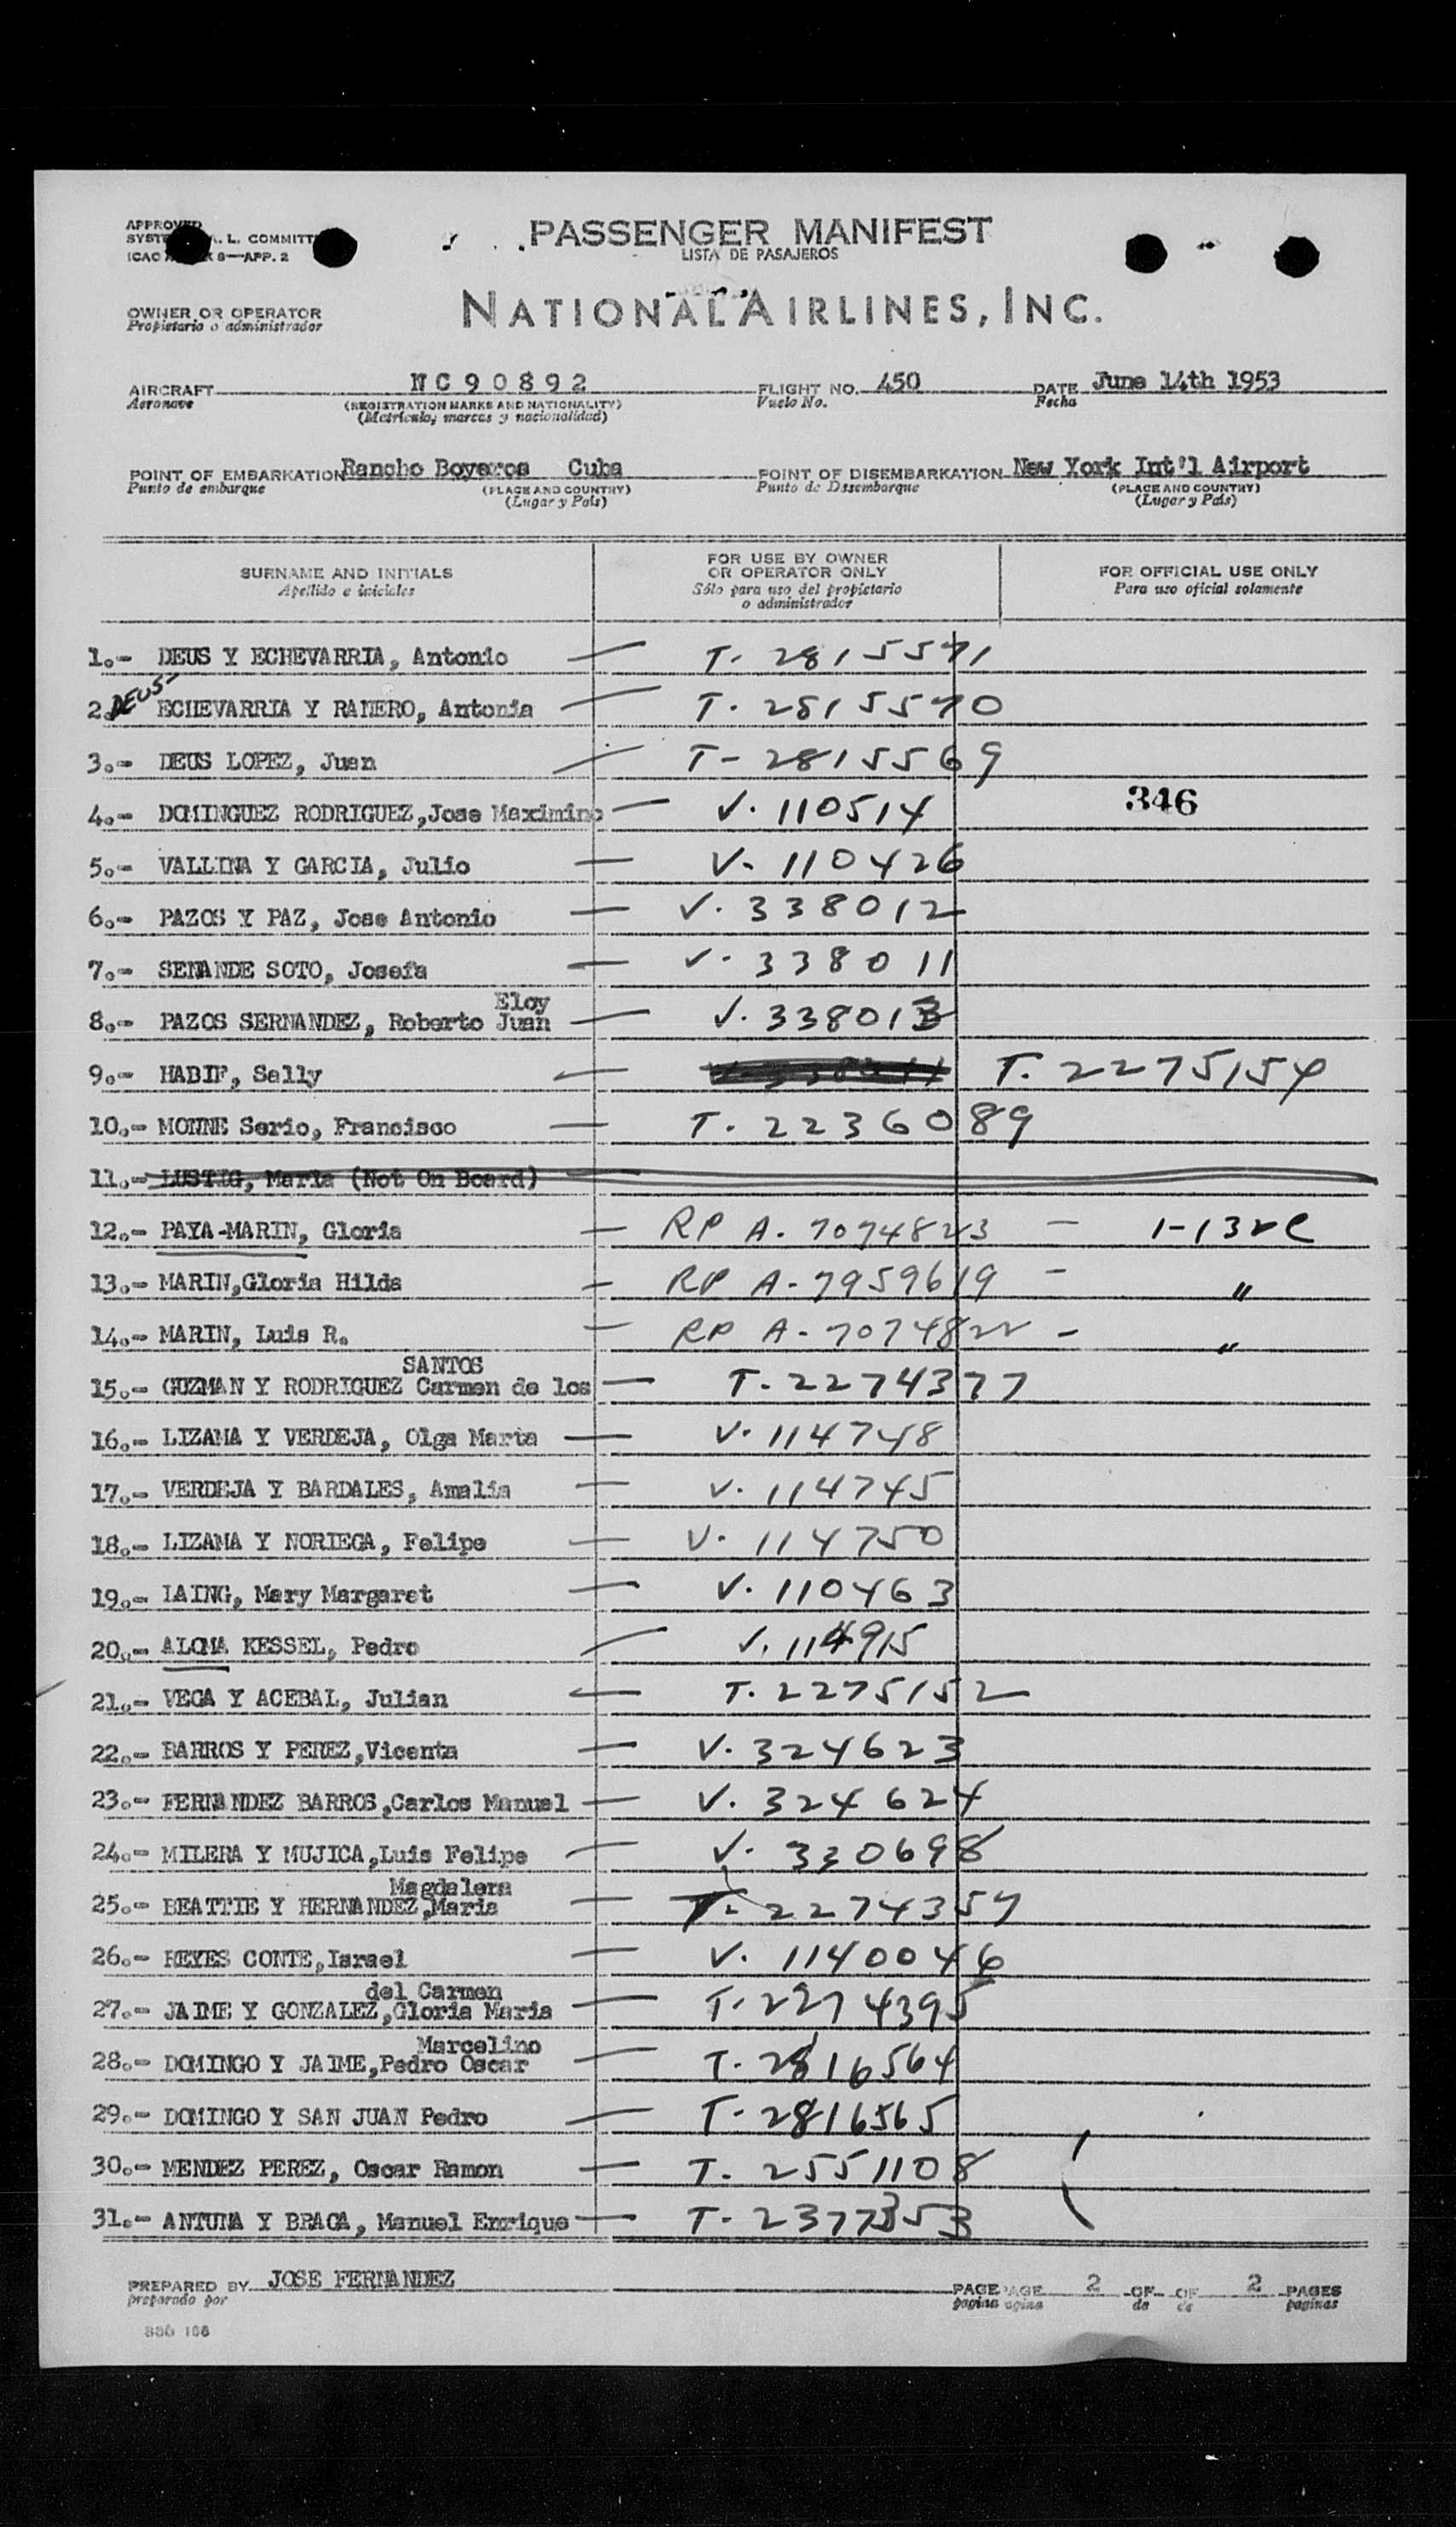 APPROVED
PASSENGER MANIFEST
A. L. COMMITT
LISTA DE PASAJEROS
8—APP. 2
NATIONAL AIRLINES, INC.
OWNER OR OPERATOR
Propietario o administrador
AIRCRAFT NC90892 FLIGHT NO. 450 DATE June 14th 1953
Aeronave (REGISTRATION MARKS AND NATIONALITY) Vuelo No. Fecha
(Matricula, marcas y nacionalidad)
POINT OF EMBARKATION Rancho Boyeros Cuba POINT OF DISEMBARKATION New York Int'l Airport
Punto de embarque (PLACE AND COUNTRY) Punto de Desembarque (PLACE AND COUNTRY)
(Lugar y País) (Lugar y País)
SURNAME AND INITIALS FOR USE BY OWNER OR OPERATOR ONLY FOR OFFICIAL USE ONLY
Apellido e iniciales Sólo para uso del propietario o administrador Para uso oficial solamente
1.- DEUS Y ECHEVARRIA, Antonio — T. 2815571
2.- DEUS- ECHEVARRIA Y RAMERO, Antonia — T. 2815570
3.- DEUS LOPEZ, Juan — T- 2815569
4.- DOMINGUEZ RODRIGUEZ,Jose Maximino — V. 110514 346
5.- VALLINA Y GARCIA, Julio — V- 110426
6.- PAZOS Y PAZ, Jose Antonio — V. 338012
7.- SENANDE SOTO, Josefa — V- 338011
Eloy
8.- PAZOS SERNANDEZ, Roberto Juan — V. 338013
9.- HABIF, Sally — T. 2275154
10.- MONNE Serio, Francisco — T. 2236089
11.- LUSTIG, Maria (Not On Board)
12.- PAYA-MARIN, Gloria — RP A- 7074823 — 1-132c
13.- MARIN,Gloria Hilda — RP A- 7959619 — "
14.- MARIN, Luis R. — RP A-7074822 — "
SANTOS
15.- GUZMAN Y RODRIGUEZ Carmen de los — T. 2274377
16.- LIZAMA Y VERDEJA, Olga Marta — V. 114748
17.- VERDEJA Y BARDALES, Amalia — V. 114745
18.- LIZAMA Y NORIEGA, Felipe — V- 114750
19.- LAING, Mary Margaret — V. 110463
20.- ALOMA KESSEL, Pedro — V. 114915
21.- VEGA Y ACEBAL, Julian — T. 2275152
22.- BARROS Y PEREZ,Vicenta — V. 324623
23.- FERNANDEZ BARROS,Carlos Manuel — V. 324624
24.- MILERA Y MUJICA,Luis Felipe — V. 330698
Magdalera
25.- BEATTIE Y HERNANDEZ,Maria — T- 2274357
26.- REYES CONTE,Israel — V. 1140046
del Carmen
27.- JAIME Y GONZALEZ,Gloria Maria — T. 2274395
Marcelino
28.- DOMINGO Y JAIME,Pedro Oscar — T. 2816564
29.- DOMINGO Y SAN JUAN Pedro — T- 2816565
30.- MENDEZ PEREZ, Oscar Ramon — T. 2551108
31.- ANTUNA Y BRAGA, Manuel Enrique — T- 2377353
PREPARED BY JOSE FERNANDEZ PAGE 2 OF 2 PAGES
preparado por pagina de paginas